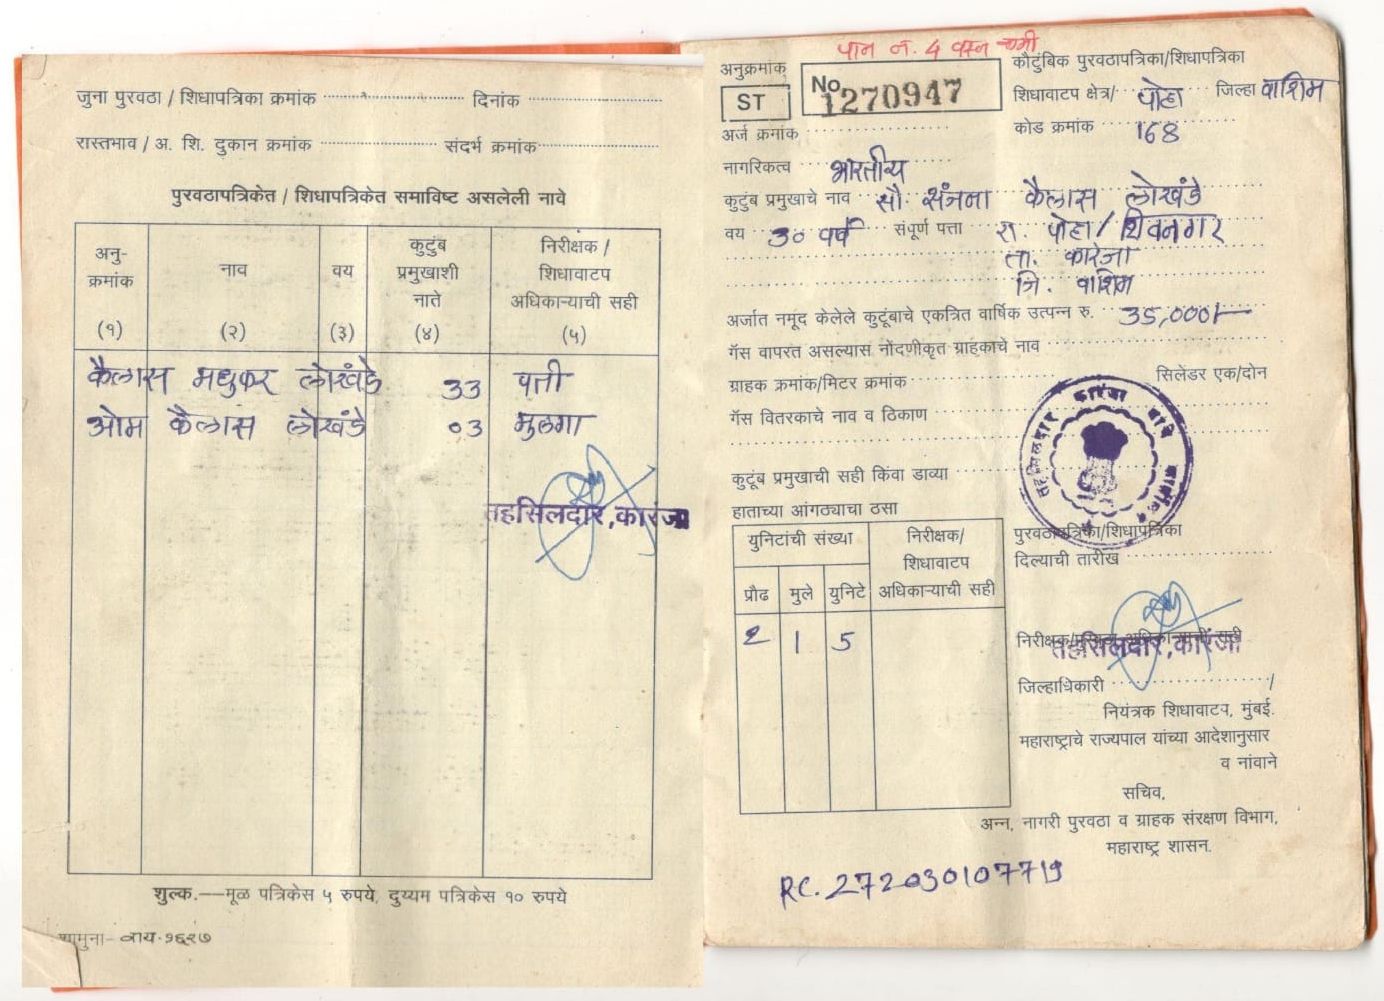 जुना पुरवठा / शिधापत्रिका क्रमांक ............ दिनांक ............
रास्तभाव / अ. शि. दुकान क्रमांक ............ संदर्भ क्रमांक ............
पुरवठापत्रिकेत / शिधापत्रिकेत समाविष्ट असलेली नावे
अनु-क्रमांक नाव वय कुटुंब प्रमुखाशी नाते निरीक्षक / शिधावाटप अधिकाऱ्याची सही
(१) (२) (३) (४) (५)
कैलास मधुकर लोखंडे 33 पती
ओम कैलास लोखंडे 03 मुलगा
तहसिलदार, कारंजा
शुल्क.—मूळ पत्रिकेस ५ रुपये, दुय्यम पत्रिकेस १० रुपये
पान नं. 4
अनुक्रमांक
ST
No 1270947
कौटुंबिक पुरवठापत्रिका/शिधापत्रिका
शिधावाटप क्षेत्र/ पोहा जिल्हा वाशिम
अर्ज क्रमांक ............ कोड क्रमांक 168
नागरिकत्व भारतीय
कुटुंब प्रमुखाचे नाव सौ. संजना कैलास लोखंडे
वय 30 वर्षे संपूर्ण पत्ता रा. पोहा / शिवनगर
ता. कारंजा
जि. वाशिम
अर्जात नमूद केलेले कुटूंबाचे एकत्रित वार्षिक उत्पन्न रु. 35,000/-
गॅस वापरत असल्यास नोंदणीकृत ग्राहकाचे नाव ............
ग्राहक क्रमांक/मिटर क्रमांक ............ सिलेंडर एक/दोन
गॅस वितरकाचे नाव व ठिकाण ............
तहसिलदार कारंजा यांचे
कुटूंब प्रमुखाची सही किंवा डाव्या
हाताच्या आंगठ्याचा ठसा
युनिटांची संख्या निरीक्षक/ शिधावाटप अधिकाऱ्याची सही
प्रौढ मुले युनिटे
2 1 5
पुरवठापत्रिका/शिधापत्रिका
दिल्याची तारीख ............
तहसिलदार, कारंजा
जिल्हाधिकारी ............/
नियंत्रक शिधावाटप, मुंबई.
महाराष्ट्राचे राज्यपाल यांच्या आदेशानुसार
व नांवाने
सचिव,
अन्न, नागरी पुरवठा व ग्राहक संरक्षण विभाग,
महाराष्ट्र शासन.
RC. 272030107719